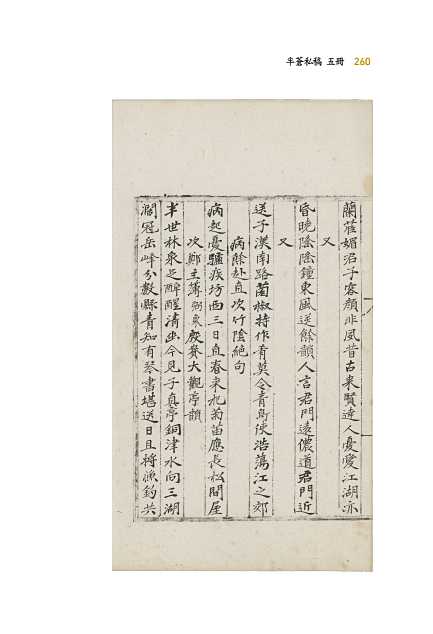 半蒼私稿 五冊 260
蘭茝媚君子容顔非風昔古來賢達人憂愛江湖亦
又
昏曉陰陰鐘東風送餘韻人言君門遠儂道君門近
又
送子漢南路蘭椒持作肴莫令青鳥使浩蕩江之郊
病餘赴直次竹陰絶句
病起憂驢疾坊西三日直春來杞菊苗應長松間屋
次鄭主簿弼東殷賚大觀亭韻
半世林泉乏醉醒清幽今見子真亭銅津水向三湖
濶冠岳峰分數縣青知有琴書堪送日且將漁釣共